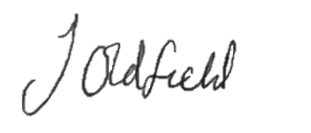 J Oldfield